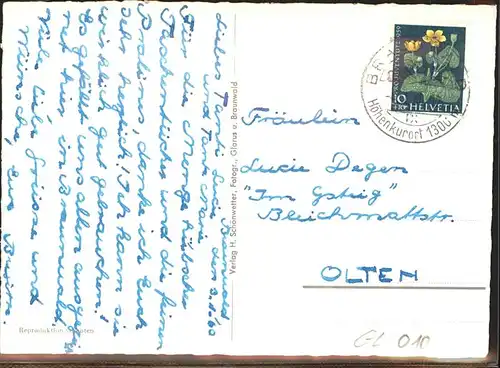 Braunwald
den 3.1.60
Liebes Tanti Lucie
und Tante Marie
Für die Menge hübscher
Taschentücher und die feinen
Pralinés, danke ich Euch
sehr herzlich! Ich kann sie
wirklich gut gebrauchen!
Es gefällt uns allen ausgezeich
net hier in Braunwald.
Viele liebe Grüsse und
Wünsche, Eure
Verlag H. Schönwetter, Fotogr., Glarus u. Braunwald
Reproduktion verboten
PRO JUVENTUTE 1959
10
+10
HELVETIA
Höhenkurort 1300 m
Fräulein
Lucie Degen
"Im Gsteig"
Bleichmattstr.
OLTEN
GL 010